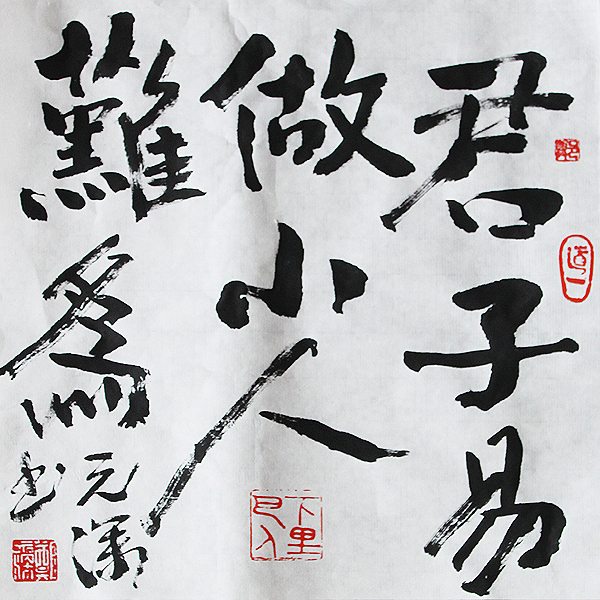 君子易
做小人
難爲
元
书
道一
下里
巴人